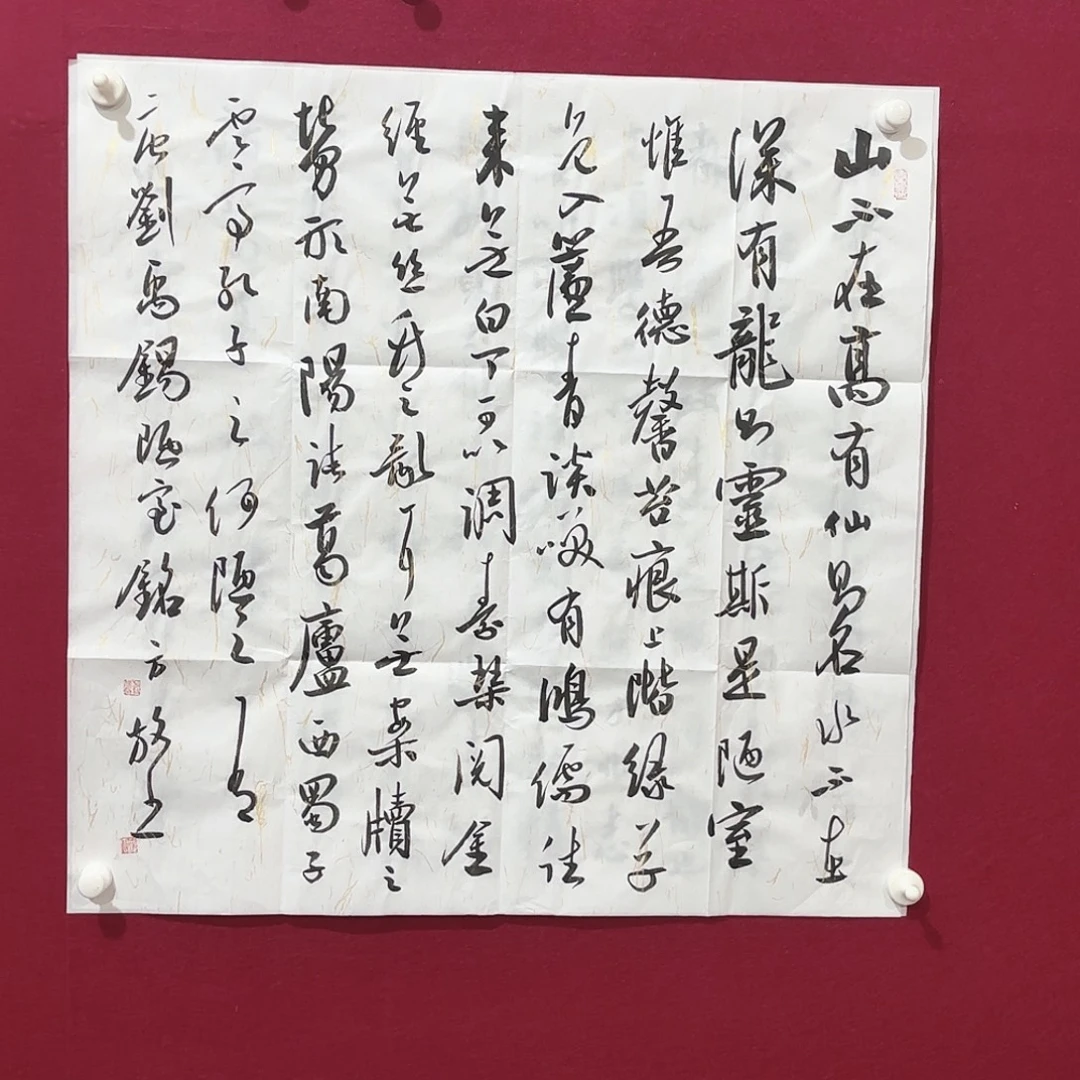 山不在高有仙則名水不在
深有龍則靈斯是陋室
惟吾德馨苔痕上階綠草
色入簾青談笑有鴻儒往
來無白丁可以調素琴閱金
經無絲竹之亂耳無案牘之
勞形南陽諸葛廬西蜀子
雲亭孔子云何陋之有
唐劉禹錫陋室銘